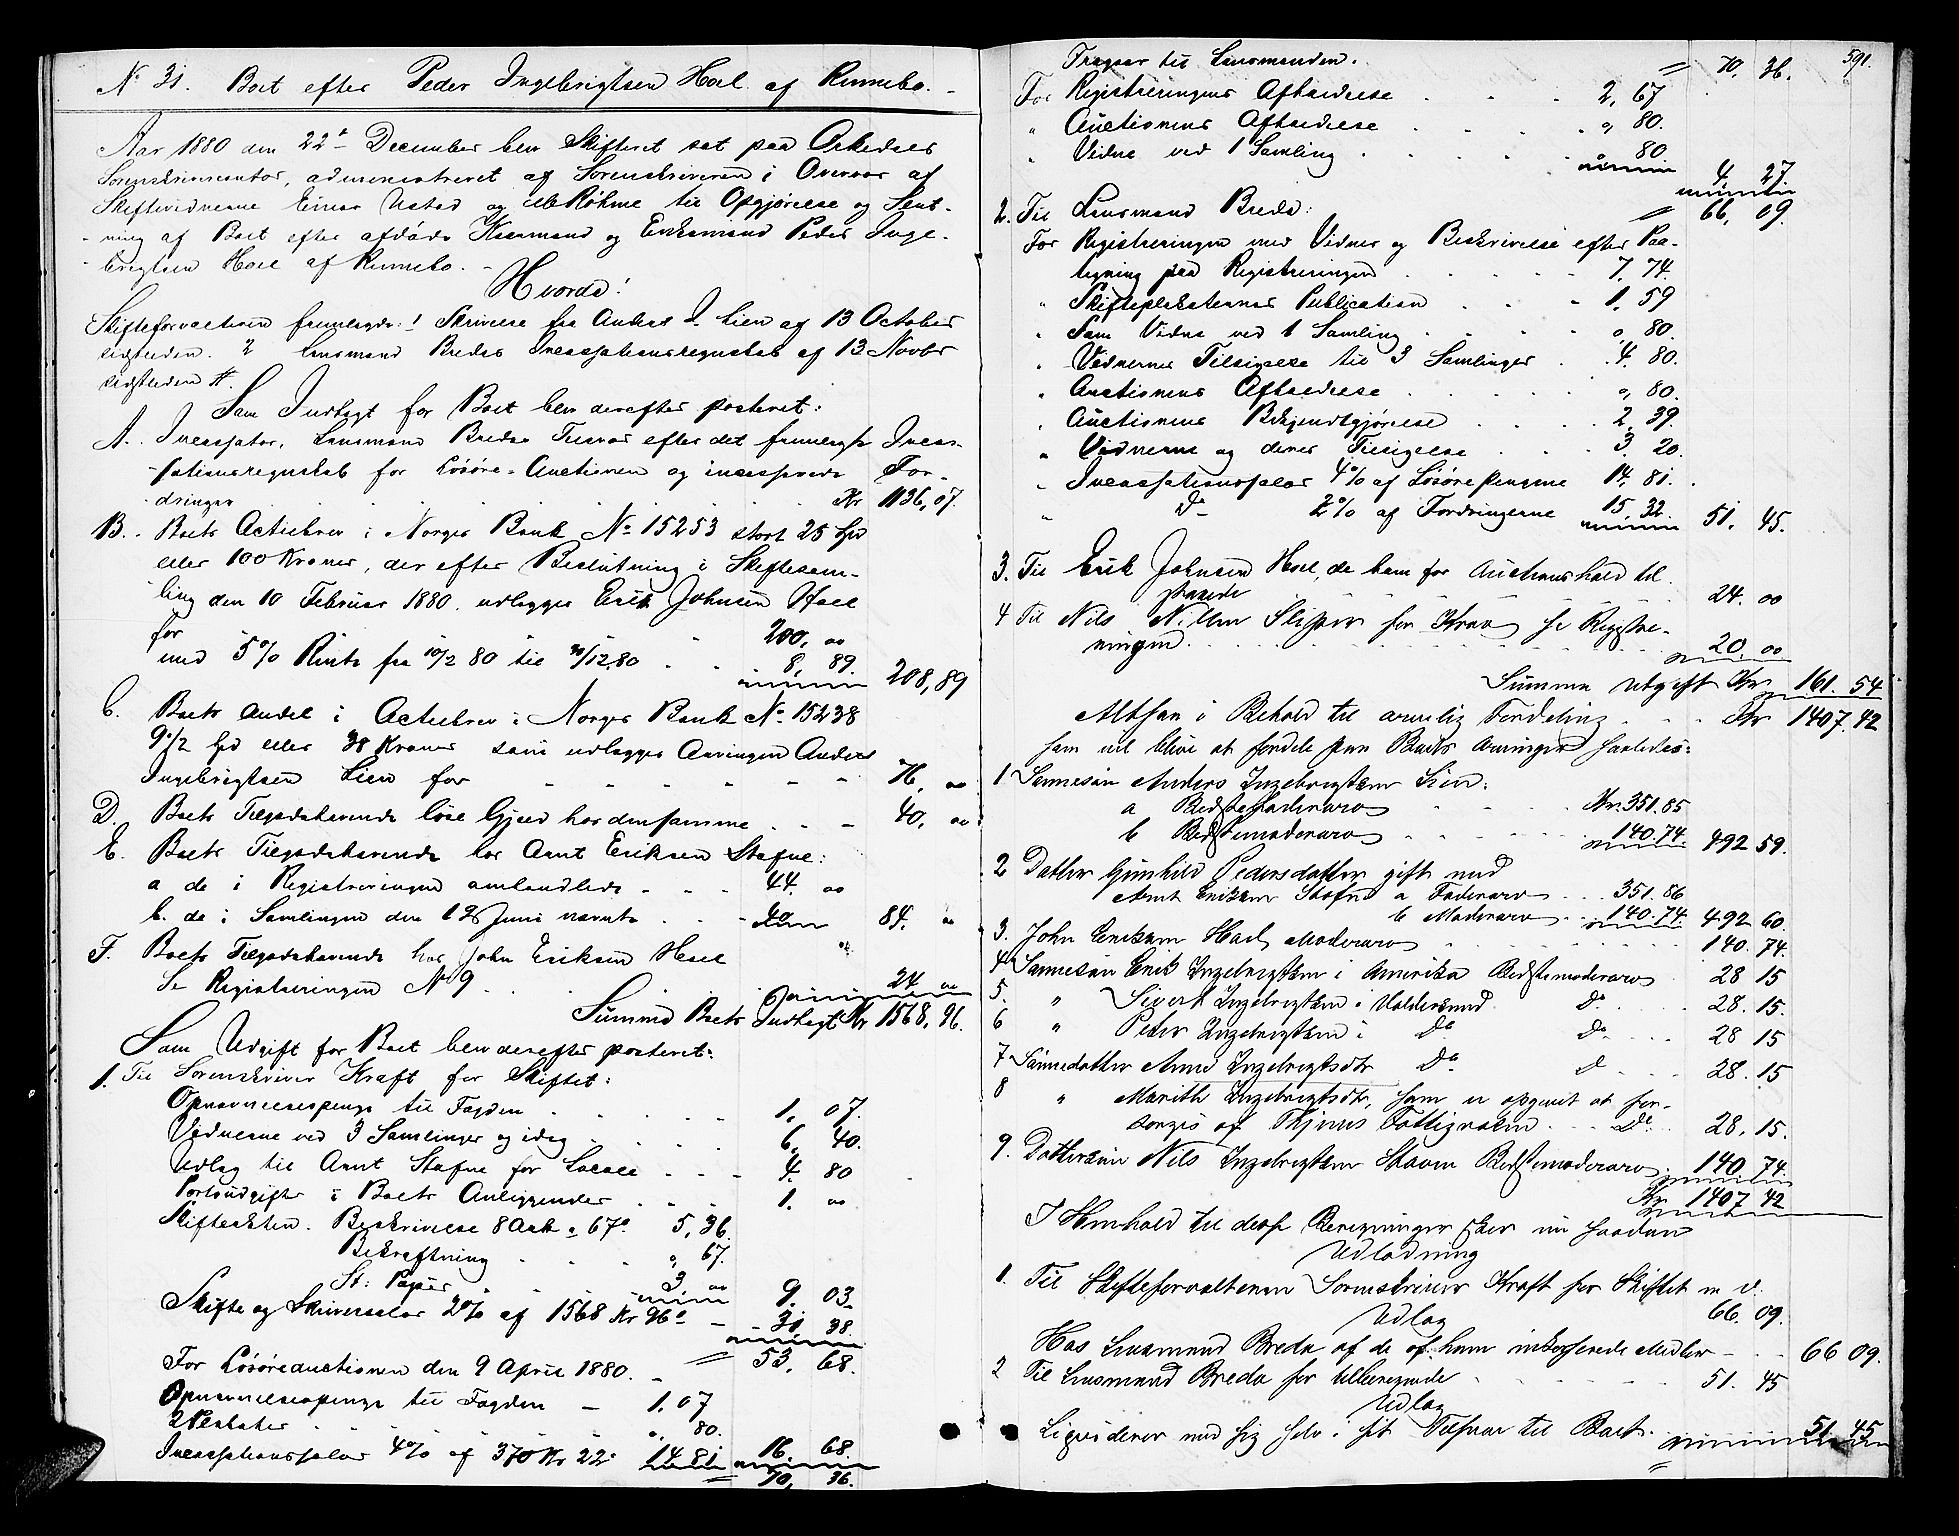 No 31. Boet efter Peder Ingebrigtsen Hoel af Rennebo.
Aar 1880 den 22de December blev Skifteret sat paa Orkedals
Sorenskrivercontor, administreret af Sorenskriveren i Overvær af
Skiftevidnerne Einar Ustad og Røhme til Opgjørelse og Slut-
ning af Boet efter afdøde Kaarmand og Enkemand Peder Inge-
brigtsen Hoel af Rennebo.
Hvorda!
Skifteforvalteren fremlagde: 1 Skrivelse fra Anders I. Lien af 13 October
sidstleden. 2 Lensmand Bredes Incassationsregnskab af 13 Novbr
sidstleden #.
Som Indtægt for Boet blev derefter posteret:
A. Incassator, Lensmand Bredes Tilsvar efter det fremlagte Incas-
sationsregnskab for Løsøre-Auctionen og incasserede For-
dringer Kr 1136,07.
B. Boets Actiebrev i Norges Bank No 15253 stort 25 Spd
eller 100 Kroner, der efter Beslutning i Skiftesam-
ling den 10 Februar 1880 udlægges Erik Johnsen Hoel
for 200, 00
med 5% Rente fra 10/2 80 til 31/12.80 8, 89. 208,89
C. Boets Andel i Actiebrev i Norges Bank No 15238
9 1/2 Spd eller 38 Kroner som udlægges Arvingen Anders
Ingebrigtsen Lien for 76, 00
D. Boets Tilgodehavende løse Gjæld hos densamme 40, 00
E. Boets Tilgodehavende hos Arnt Eriksen Stafne:
a de i Registreringen omhandlede 44. 00
b. de i Samlingen den 12 Juni nævnte 40 84. 00
F. Boets Tilgodehavende hos John Eriksen Hoel
Se Registreringen No 9 24 00
Summa Boets Indtægt Kr 1568, 96.
Som Udgift for Boet blev derefter posteret:
1. Til Sorenskriver Kraft for Skiftet:
Opnævnelsespenge til Fogden 1, 07.
Vidnerne ved 3 Samlinger og idag 6, 40.
Udlæg til Arnt Stafne for Locale 4. 80
Portoudgifter i Boets Anliggender 1. 00
Skifteakten. Beskrivelse 8 Ark a 67 ø 5, 36.
Bekræftning 0, 67.
St: Papir 3 00 9. 03.
Skifte og Skriversalær 2% af 1568 Kr 96 ø 31 38.
53, 68.
For Løsøreauctionen den 9 April 1880.
Opnævnelsespenge til Fogden 1.07
2 Plakater 0, 80.
Incassationssalær 4% af 370 Kr 22 ø 14 81 16. 68.
70, 36.
591.
Fragaar til Lensmanden. 70, 36.
For Registreringens Afholdelse 2, 67
" Auctionens Afholdelse 0, 80.
" Vidne ved 1 Samling 80
4. 27
2. Til Lensmand Brede: 66, 09.
For Registreringen med Vidner og Beskrivelse efter Paa-
tegning paa Registreringen 7, 74.
" Skifteplakaternes Publication 1, 59
" Som Vidne ved 1 Samling 0, 80.
" Vidnernes Tilsigelse til 3 Samlinger 4. 80.
" Auctionens Afholdelse 0, 80.
" Auctionens Bekjendtgjørelse 2, 39.
" Vidnerne og deres Tilsigelse 3. 20.
" Incassationssalær 4% af Løsørepengene 14, 81.
" Do 2% af Fordringerne 15, 32 51, 45.
3. Til Erik Johnsen Hoel, de ham for Auctionshold til
24. 00
4 Til Nils for Krav se Registre-
ningen 20. 00
Summa Udgift Kr 161. 54
Altsaa i Behold til arvelig Fordeling Kr 1407.42
som vil blive at fordele paa Boets Arvinger saaledes:
1 Sønnesøn Anders Ingebrigtsen Lien:
a Bedstefaderarv Kr. 351.85
b Bedstemoderarv 140.74. 492 59.
2 Datter Gunhild Pedersdatter gift med
Arnt Eriksen Stafne a Faderarv 351.86
b Moderarv 140.74. 492 60.
3. John Eriksen Hoel, Moderarv 140. 74.
4 Sønnesøn Erik Ingebrigtsen i Amerika Bedstemoderarv 28 15
5. " Sivert Ingebrigtsen i Do 28. 15.
6 " Peder Ingebrigtsen i Do Do 28 15
7 Sønnedatter Anne Ingebrigtsdtr Do D 28. 15
8 " Marith Ingebrigtsdtr, som er opgivet at for-
sørges af Fattigvæsen Do 28. 15.
9. Dattersøn Nils Ingebrigtsen Bedstemoderarv 140. 74.
Kr 1407 42
I Henhold til disse Beregninger sker nu saadan
Udlodning
1. Til Skifteforvalteren Sorenskriver Kraft for Skiftet m. v. 66. 09.
Udlæg
Hos Lensmand Brede af de af ham incasserede Midler 66 09.
2 Til Lensmand Brede for tilberegnede 51. 45
Udlæg
Ligviderer med sig selv i sit Tilsvar til Boet. 51 45